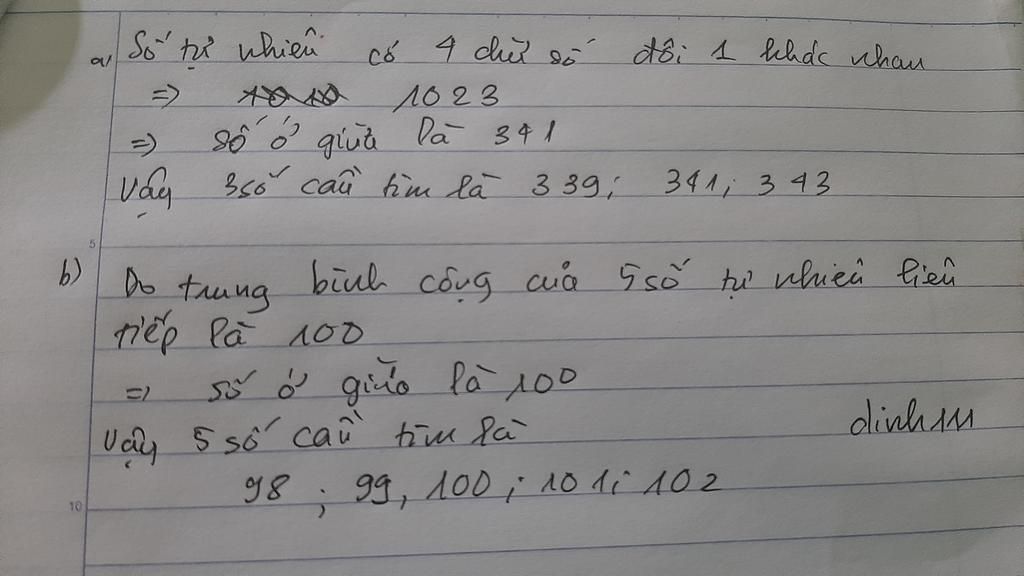 a, Số tự nhiên có 4 chữ số đôi 1 khác nhau
=> 1023
=> số ở giữa là 341
Vậy 3 số cần tìm là 339; 341; 343
5
b) Do trung bình cộng của 5 số tự nhiên liên
tiếp là 100
=> số ở giữa là 100
Vậy 5 số cần tìm là
dinh111
98 ; 99, 100 ; 101; 102
10